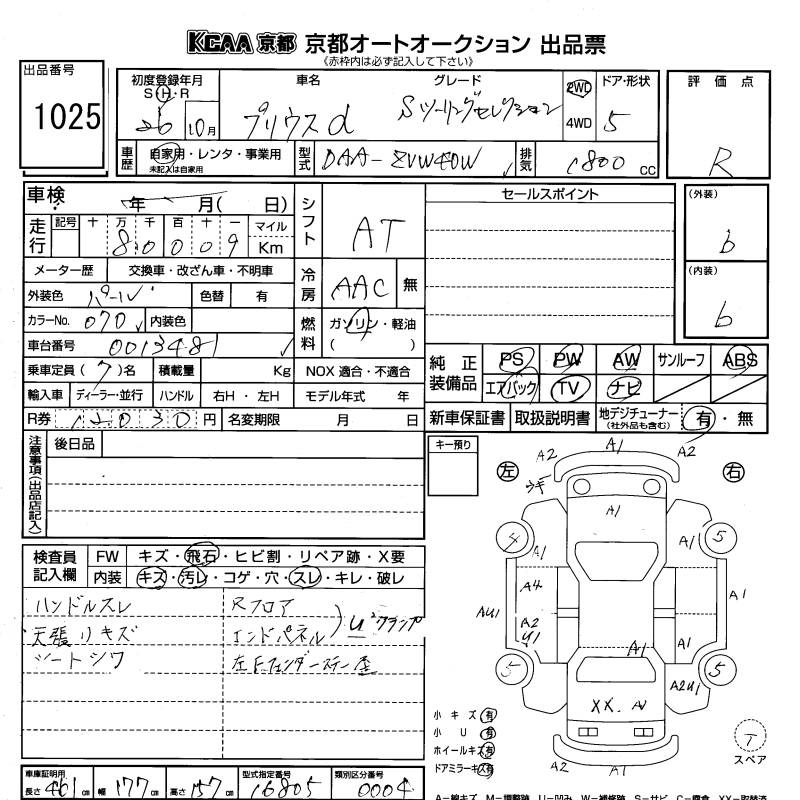 KCAA 京都 京都オートオークション 出品票
《赤枠内は必ず記入して下さい》
出品番号
1025
初度登録年月
S・H・R
26 10月
車名
プリウスα
グレード
Sツーリングセレクション
2WD
4WD
ドア・形状
5
評価点
R
車歴
自家用・レンタ・事業用
未記入は自家用
型式
DAA-ZVW40W
排気
1800 cc
車検
年 月( 日)
シフト
AT
セールスポイント
(外装)
b
(内装)
b
走行
記号 十 万 千 百 十 一 マイル
8 0 0 0 9 Km
メーター歴 交換車・改ざん車・不明車
冷房
AAC 無
外装色 パール 色替 有
カラーNo. 070 内装色
燃料
ガソリン・軽油
( )
車台番号 0013481
乗車定員(7)名 積載量 Kg NOX 適合・不適合
輸入車 ディーラー・並行 ハンドル 右H・左H モデル年式 年
R券 12030円 名変期限 月 日
純正装備品
PS PW AW サンルーフ ABS
エアバック TV ナビ
新車保証書 取扱説明書 地デジチューナー(社外品も含む) 有・無
注意事項(出品店記入)
後日品
キー預り
左
右
検査員記入欄
FW キズ・飛石・ヒビ割・リペア跡・X要
内装 キズ・汚レ・コゲ・穴・スレ・キレ・破レ
ハンドルスレ
天張りキズ
シートシワ
Rフロア
エンドパネル
U クランプ
左Fフェンダーステー歪
A2 A1 A2
A1
4 A1 A1 5
A4
A1
AU1
A2
U1
A1 A1
5 5
A2U1
XX.
A2 A1
T
スペア
小キズ 有
小U 有
ホイールキズ 有
ドアミラーキズ 有
車庫証明用
長さ 461 cm 幅 177 cm 高さ 157 cm
型式指定番号
16805
類別区分番号
0004
A-線キズ M-調整跡 U-凹み W-補修跡 S-サビ C-腐食 XX-取替済